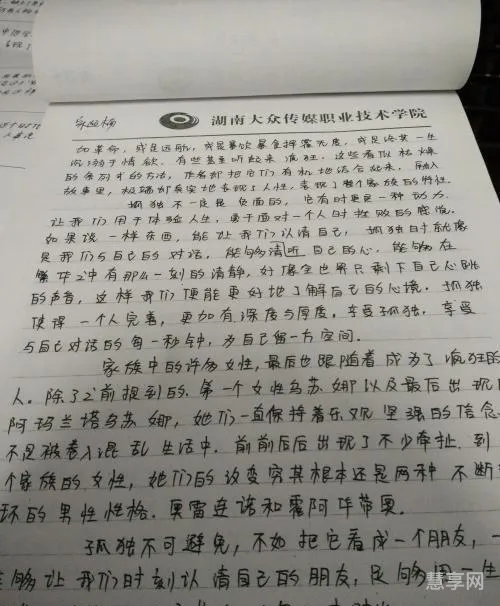 湖南大众传媒职业技术学院
如革命，或是远航，或是暴饮暴食挥霍无度，或是终其一生
沉溺于情欲。有些甚至听起来疯狂。这些看似枯燥
的条列式的方法，作者却把它们有机地结合起来，融入
故事里，极端却真实地表现了人性，表现了整个家族的特性。
孤独不一定是负面的，它有时更是一种动力，
让我们用于体验人生，勇于面对一个人时挫败的感觉。
如果说一样东西，能让我们认清自己，孤独自时就像
是我们与自己的对话，能够清听自己的心，能够在
繁华之中有那么一刻的清静，好像全世界只剩下自己心跳
的声音，这样我们便能更好地了解自己的心境。孤独
使得一个人完善，更加有深度与厚度，享受孤独，享受
与自己对话的每一秒钟，为自己留一方空间。
家族中的许多女性，最后也跟随着成为了疯狂的
人。除了之前提到的第一个女性乌苏娜以及最后出现的
阿玛兰塔乌苏娜，她们一直保持着乐观坚强的信念
不是被卷入混乱生活中。前前后后出现了不少牵扯到
个家族的女性，她们的改变究其根本还是两种不断
环的男性性格。奥雷连诺和霍阿华蒂奥。
孤独不可避免，不如把它看成一个朋友，一
能够让我们时刻认清自己的朋友，足够用一生
慧享网